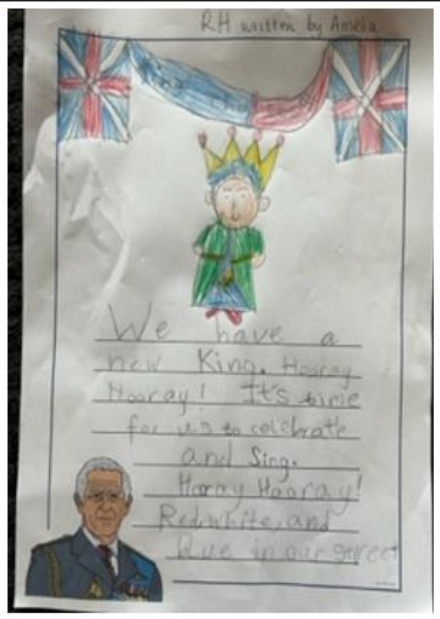 RH written by Amelia
We have a
new King. Hooray
Hooray! It's time
for us to celebrate
and Sing.
Horay Hooray!
Red, white, and
blue in our street